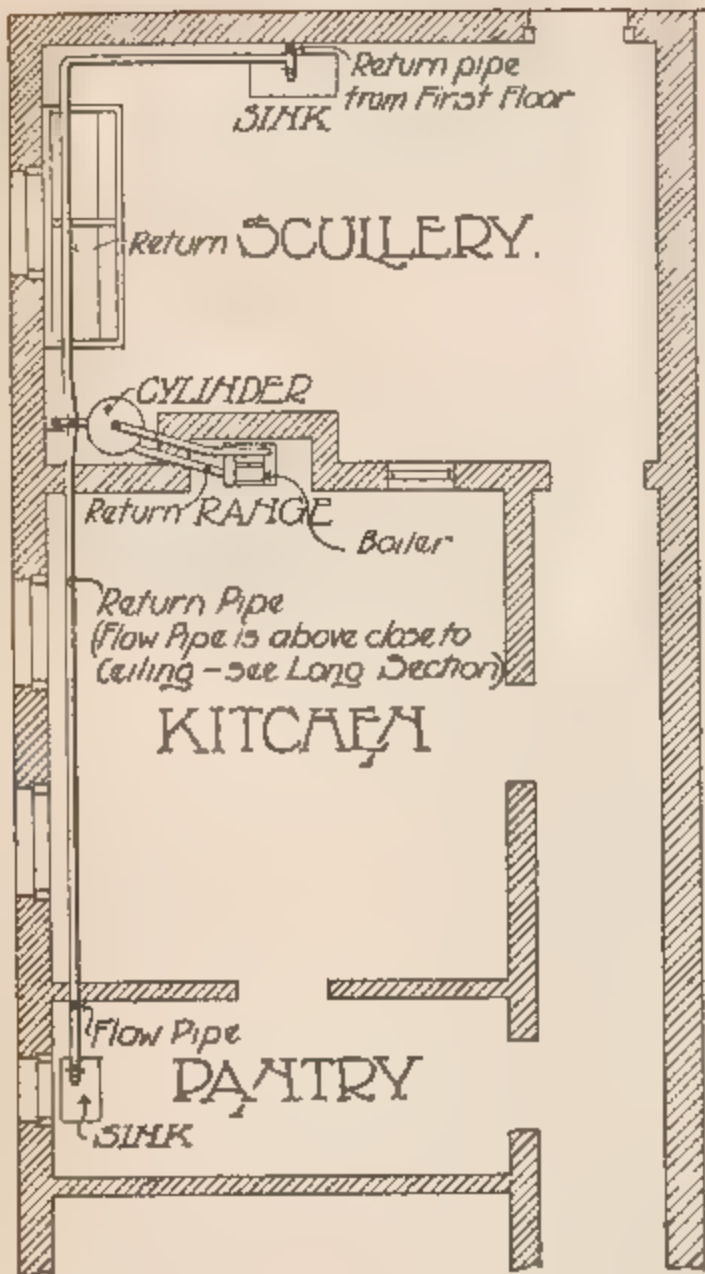 Return pipe
from First Floor
SINK
Return
SCULLERY.
CYLINDER
Return
RANGE
Boiler
Return Pipe
(Flow Pipe is above close to
Ceiling - see Long Section)
KITCHEN
Flow Pipe
PANTRY
SINK